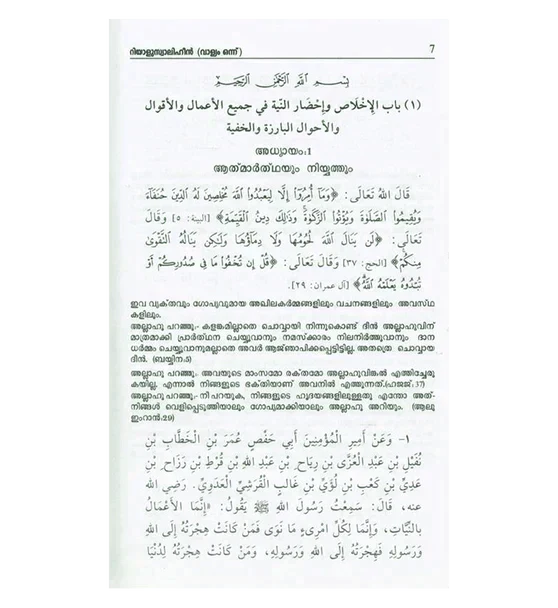 റിയാളുസ്വാലിഹീൻ (വാള്യം ഒന്ന്) 7
بسم الله الرحمن الرحيم
(١) باب الإخلاص وإحضار النية في جميع الأعمال والأقوال
والأحوال البارزة والخفية
അധ്യായം:1
ആത്മാർത്ഥയും നിയ്യത്തും
قَالَ اللهُ تَعَالَى: ﴿وَمَآ أُمِرُوٓاْ إِلَّا لِيَعْبُدُواْ ٱللَّهَ مُخْلِصِينَ لَهُ ٱلدِّينَ حُنَفَآءَ
وَيُقِيمُواْ ٱلصَّلَوٰةَ وَيُؤْتُواْ ٱلزَّكَوٰةَ وَذَٰلِكَ دِينُ ٱلْقَيِّمَةِ﴾ [البينة: ٥] وَقَالَ
تَعَالَى: ﴿لَن يَنَالَ ٱللَّهَ لُحُومُهَا وَلَا دِمَآؤُهَا وَلَٰكِن يَنَالُهُ ٱلتَّقْوَىٰ
مِنكُمْ﴾ [الحج: ٣٧] وَقَالَ تَعَالَى: ﴿قُلْ إِن تُخْفُواْ مَا فِى صُدُورِكُمْ أَوْ
تُبْدُوهُ يَعْلَمْهُ ٱللَّهُ﴾ [آل عمران: ٢٩].
ഇവ വ്യക്തവും ഗോപ്യവുമായ അഖിലകർമ്മങ്ങളിലും വചനങ്ങളിലും അവസ്ഥ
കളിലും.
അല്ലാഹു പറഞ്ഞു:- കളങ്കമില്ലാതെ ചൊവ്വായി നിന്നുകൊണ്ട് ദീൻ അല്ലാഹുവിന്
മാത്രമാക്കി പ്രാർത്ഥന ചെയ്യുവാനും നമസ്ക്കാരം നിലനിർത്തുവാനും ദാന
ധർമ്മം ചെയ്യുവാനുമല്ലാതെ അവർ ആജ്ഞാപിക്കപ്പെട്ടിട്ടില്ല. അതത്രെ ചൊവ്വായ
ദീൻ. (ബയ്യിന:5)
അല്ലാഹു പറഞ്ഞു: അവയുടെ മാംസമോ രക്തമോ അല്ലാഹുവിങ്കൽ എത്തിച്ചേരു
കയില്ല. എന്നാൽ നിങ്ങളുടെ ഭക്തിയാണ് അവനിൽ എത്തുന്നത്.(ഹജജ്:37)
അല്ലാഹു പറഞ്ഞു:- നീ പറയുക, നിങ്ങളുടെ ഹൃദയങ്ങളിലുള്ളതു എന്തോ അത്-
നിങ്ങൾ വെളിപ്പെടുത്തിയാലും ഗോപ്യമാക്കിയാലും അല്ലാഹു അറിയും. (ആലു
ഇംറാൻ:29)
١- وَعَنْ أَمِيرِ الْمُؤْمِنِينَ أَبِي حَفْصٍ عُمَرَ بْنِ الْخَطَّابِ بْنِ
نُفَيْلِ بْنِ عَبْدِ الْعُزَّى بْنِ رِيَاحِ بْنِ عَبْدِ اللهِ بْنِ قُرْطِ بْنِ رَزَاحِ بْنِ
عَدِيِّ بْنِ كَعْبِ بْنِ لُؤَيِّ بْنِ غَالِبٍ الْقُرَشِيِّ الْعَدَوِيِّ. رَضِيَ اللهُ
عنه، قَالَ: سَمِعْتُ رَسُولَ اللهِ ﷺ يَقُولُ: «إِنَّمَا الأَعْمَالُ
بالنِّيَّاتِ، وَإِنَّمَا لِكُلِّ امْرِىءٍ مَا نَوَى فَمَنْ كَانَتْ هِجْرَتُهُ إِلَى اللهِ
وَرَسُولِهِ فَهِجْرَتُهُ إِلَى اللهِ وَرَسُولِهِ، وَمَنْ كَانَتْ هِجْرَتُهُ لِدُنْيَا